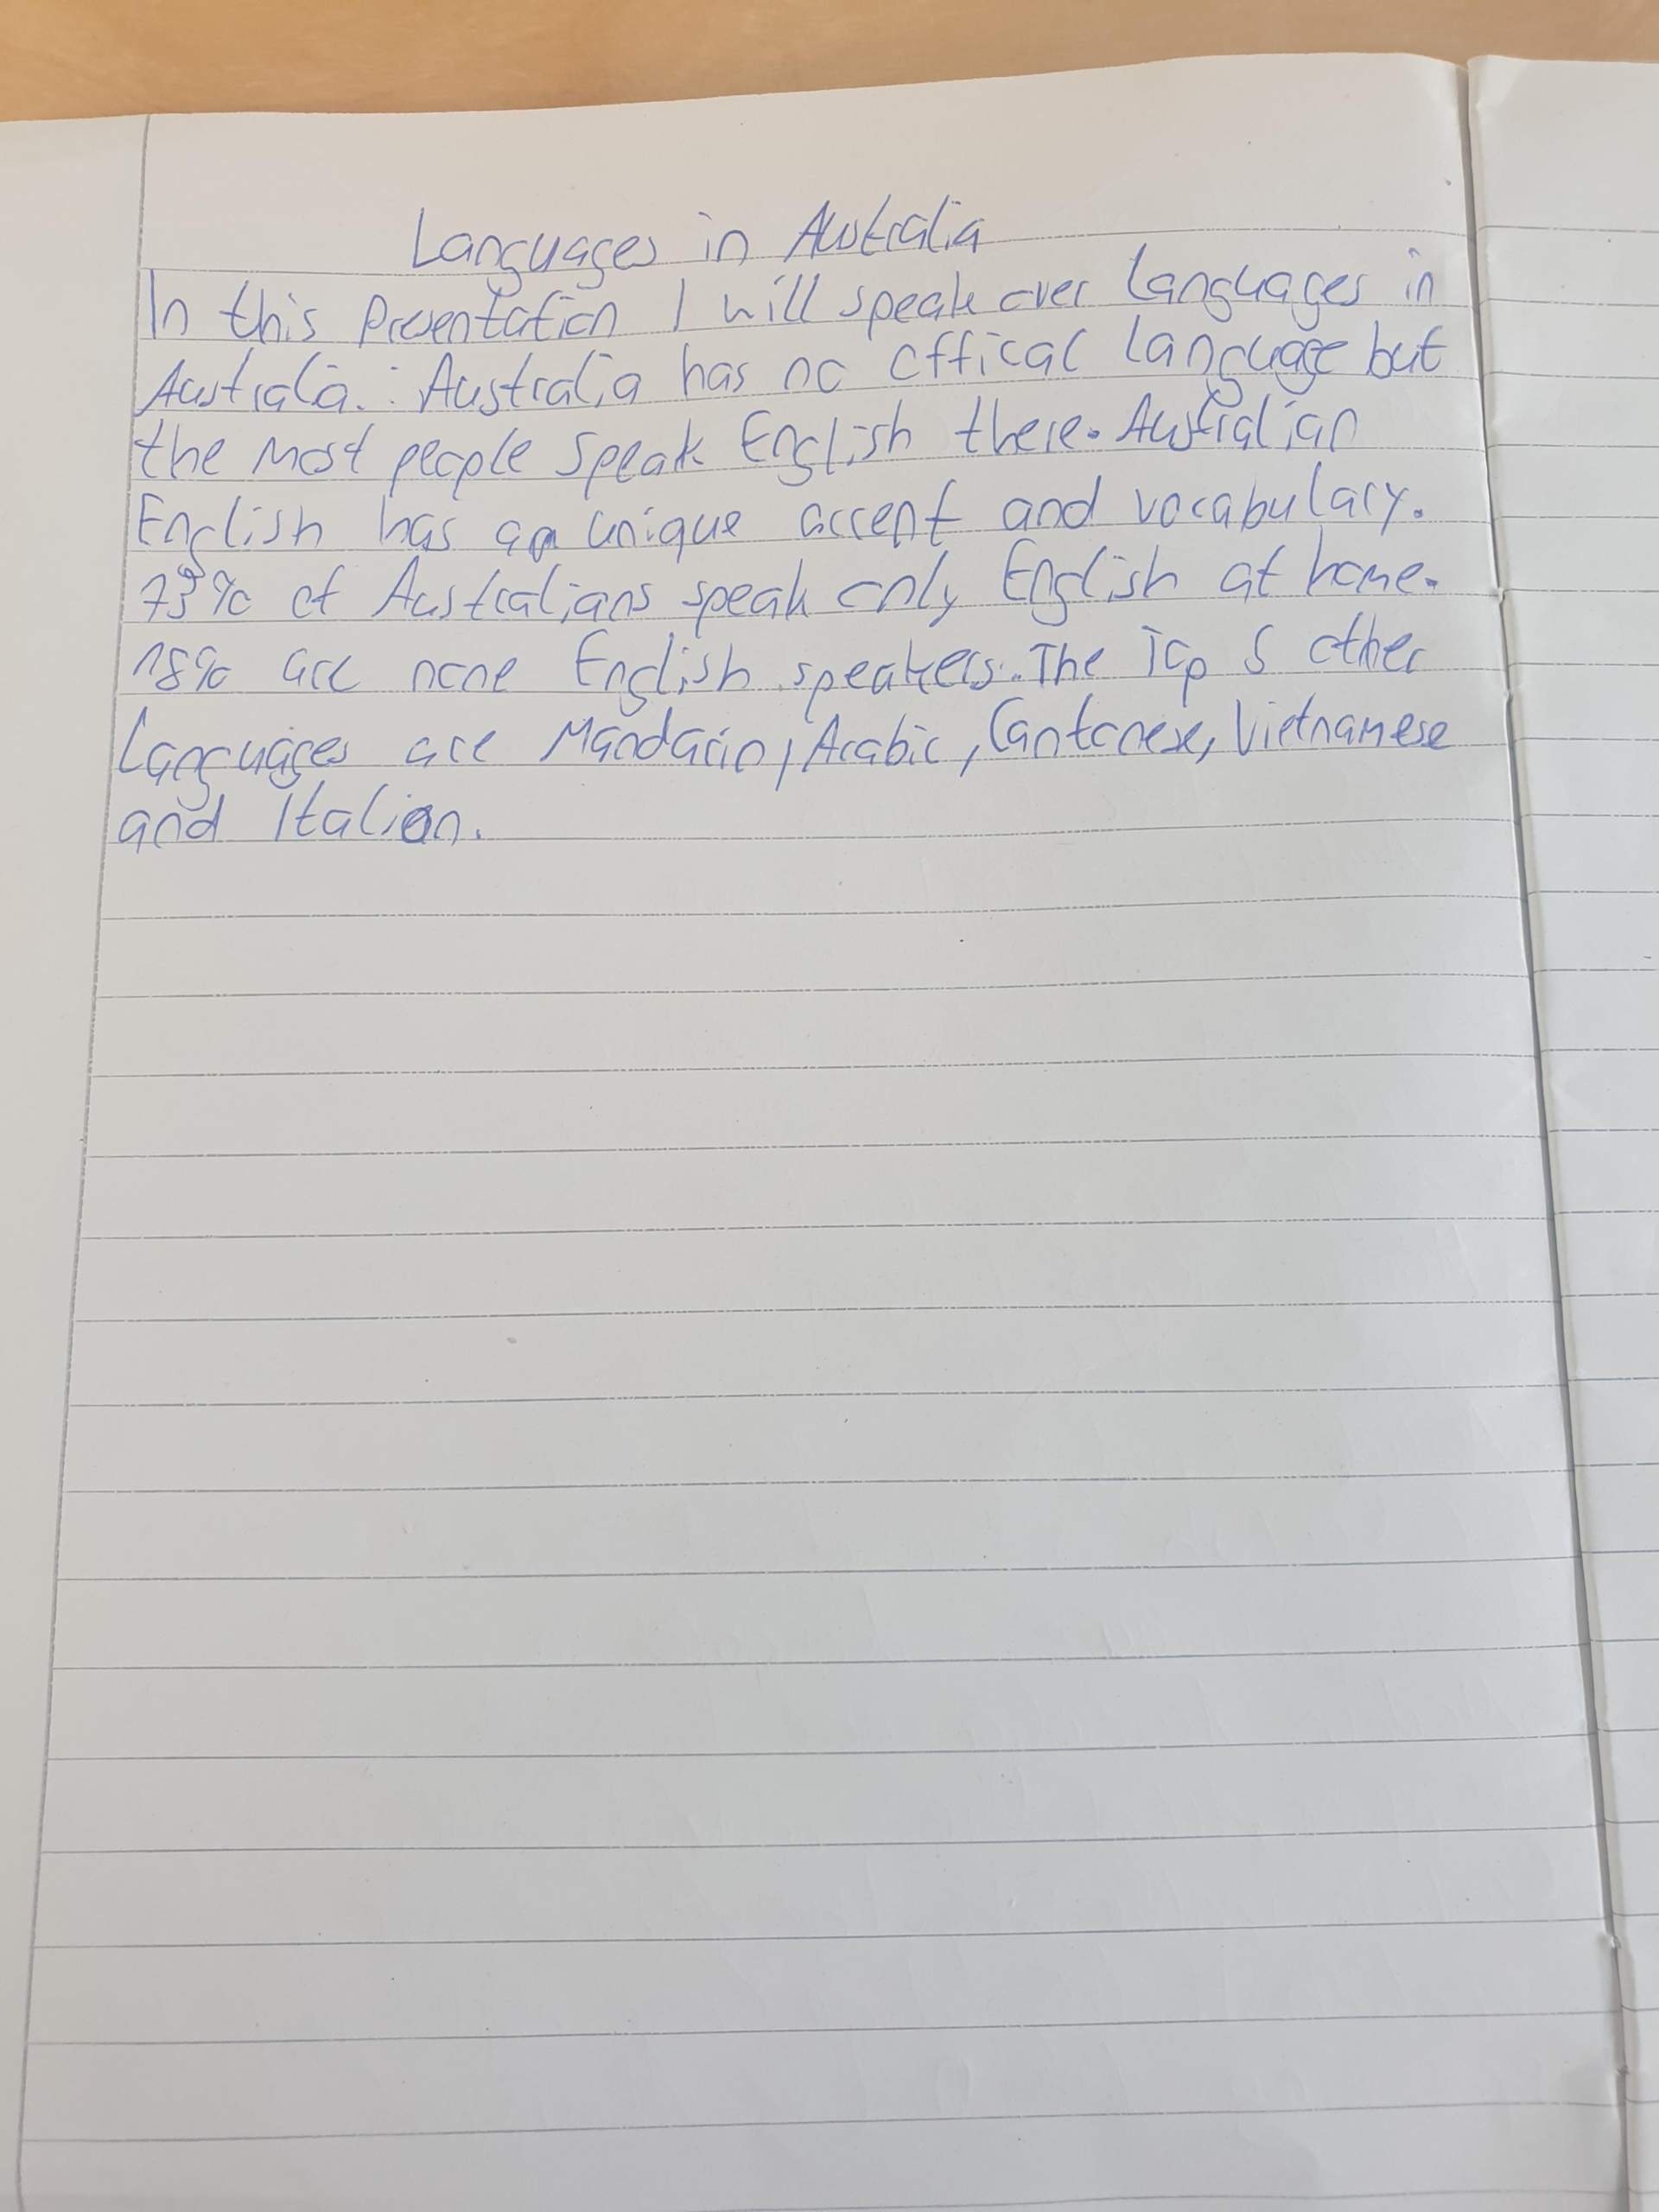 Languages in Australia
In this Presentation I will speak over languages in
Australia. Australia has no offical language but
the most people speak English there. Australian
English has a unique accent and vocabulary.
73% of Australians speak only English at home.
18% are none English speakers. The Top 5 other
Languages are Mandarin, Arabic, Cantonese, Vietnamese
and Italian.